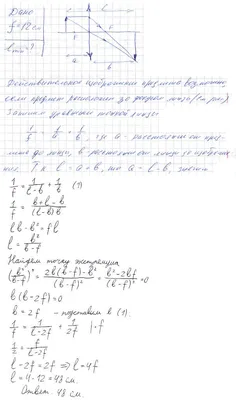 Дано
f = 12 см
l min - ?
Действительное изображение предмета возможно,
если предмет расположен до фокуса линзы (см. рис.)
Запишем уравнение тонкой линзы
1/f = 1/a + 1/b, где a - расстояние от пред-
мета до линзы, b - расстояние от линзы до изображе-
ния. Т.к l = a + b, то a = l - b, значит
1/f = 1/(l-b) + 1/b (1)
1/f = (b+l-b)/((l-b)b)
lb - b² = fl
l = b²/(b-f)
Найдем точку экстремума
(b²/(b-f))' = (2b(b-f) - b²)/(b-f)² = (b² - 2bf)/(b-f)² = 0
b(b-2f) = 0
b = 2f - подставим в (1).
1/f = 1/(l-2f) + 1/2f | · f
1/2 = f/(l-2f)
l - 2f = 2f ⇒ l = 4f
l = 4 · 12 = 48 см.
Ответ. 48 см.